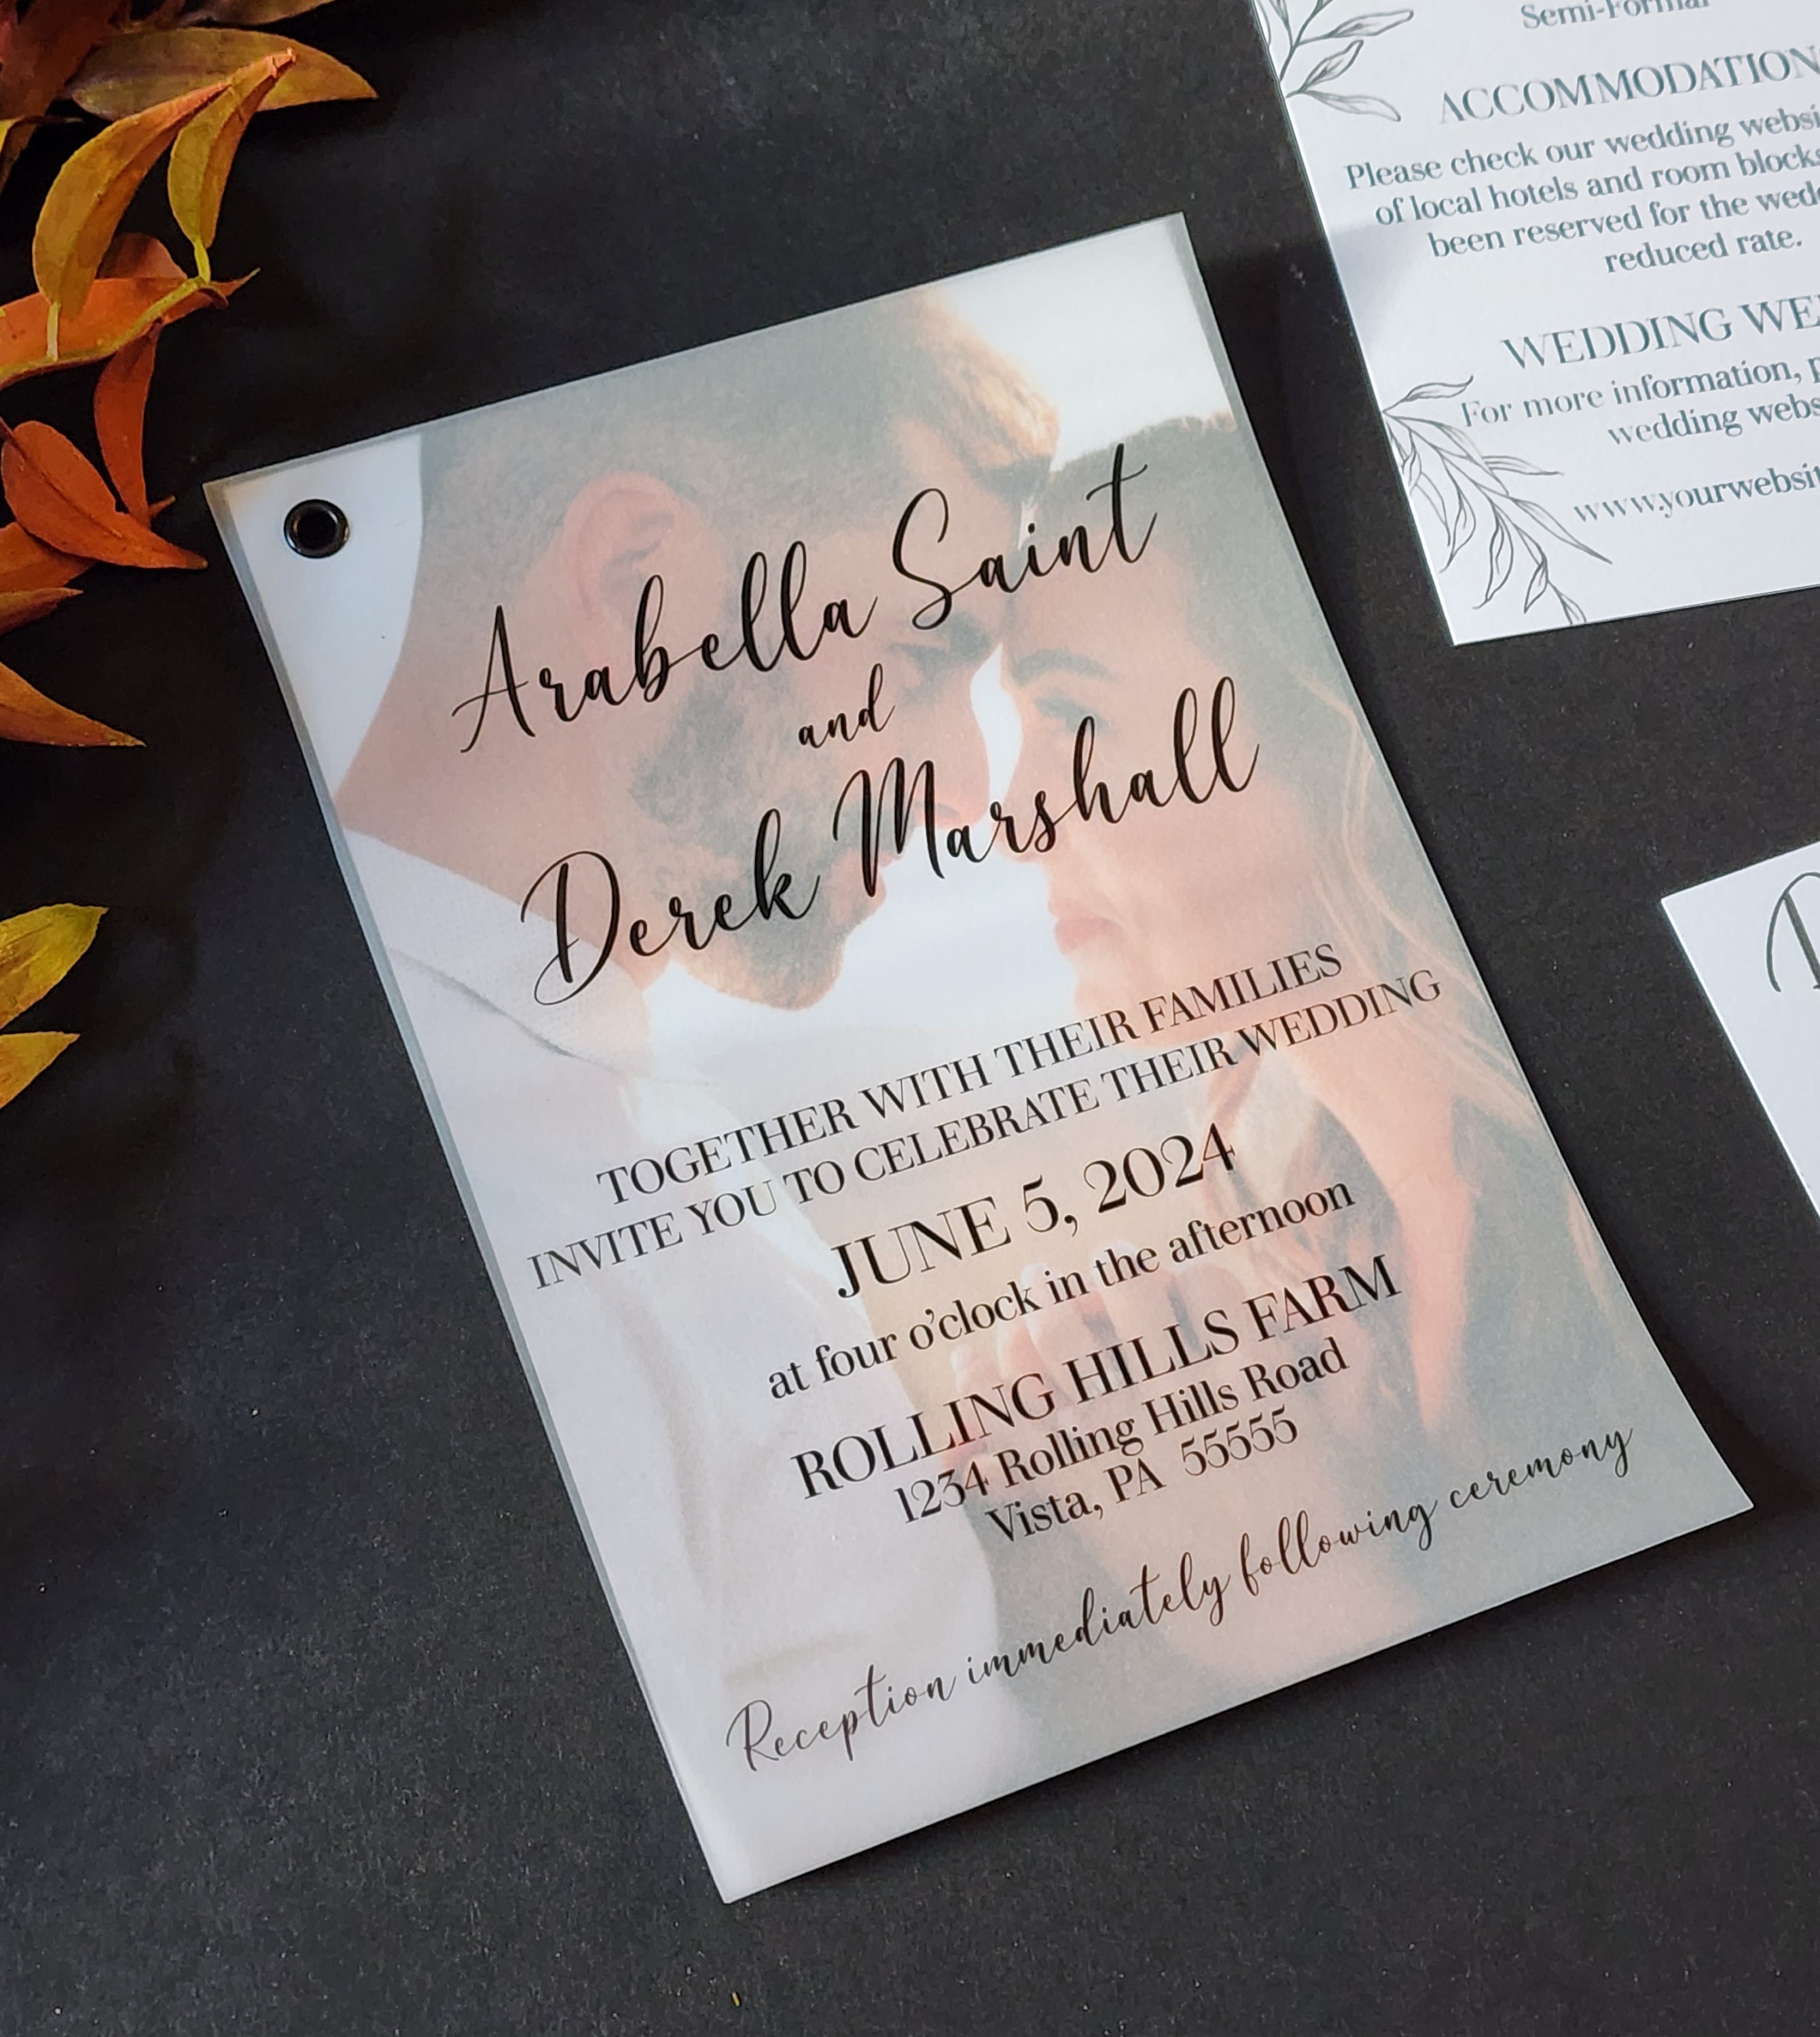 Arabella Saint
and
Derek Marshall
TOGETHER WITH THEIR FAMILIES
INVITE YOU TO CELEBRATE THEIR WEDDING
JUNE 5, 2024
at four o'clock in the afternoon
ROLLING HILLS FARM
1234 Rolling Hills Road
Vista, PA 55555
Reception immediately following ceremony
Semi-Formal
ACCOMMODATION
Please check our wedding websi
of local hotels and room blocks
been reserved for the wedd
reduced rate.
WEDDING WE
For more information, p
wedding webs
www.yourwebsit